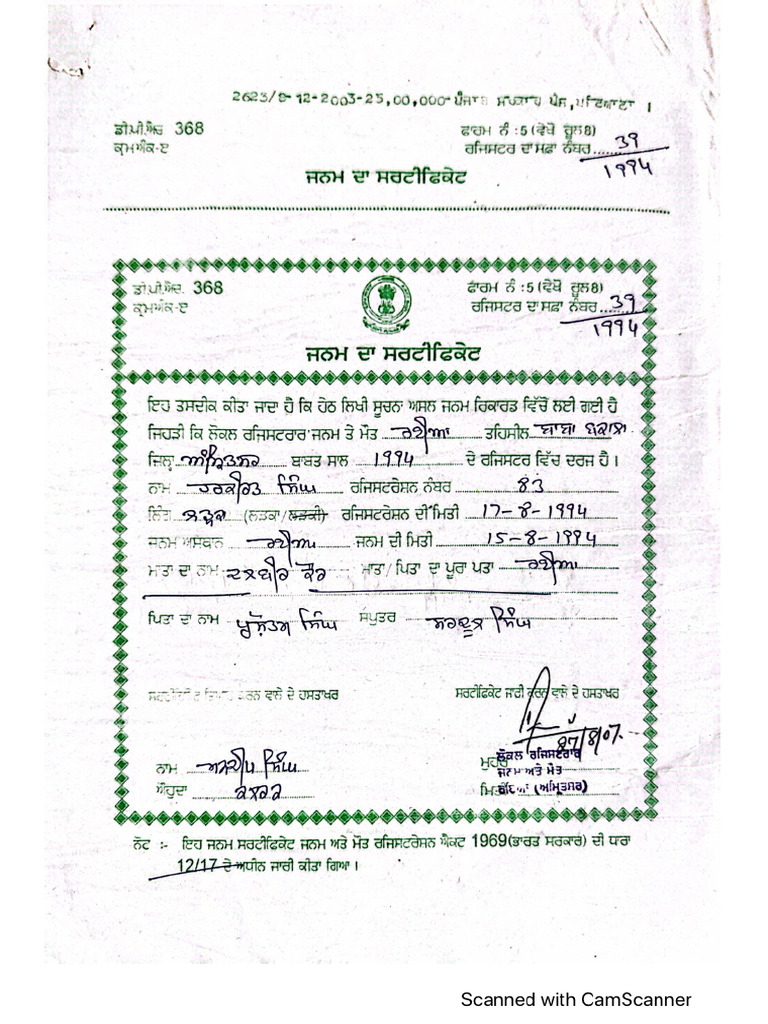 2623/8-12-2003-25,00,000-ਪੰਜਾਬ ਸਰਕਾਰ ਪ੍ਰੈਸ, ਪਟਿਆਲਾ ।
ਡੀ.ਪੀ.ਐਚ 368 ਫਾਰਮ ਨੰ :5 (ਵੇਖੋ ਰੂਲ 8)
ਕ੍ਰਮਅੰਕ-ੲ ਰਜਿਸਟਰ ਦਾ ਸਫ਼ਾ ਨੰਬਰ 39
1994
ਜਨਮ ਦਾ ਸਰਟੀਫਿਕੇਟ
ਡੀ.ਪੀ.ਐਚ. 368 ਫਾਰਮ ਨੰ :5 (ਵੇਖੋ ਰੂਲ 8)
ਕ੍ਰਮਅੰਕ-ੲ ਰਜਿਸਟਰ ਦਾ ਸਫ਼ਾ ਨੰਬਰ 39
1994
ਜਨਮ ਦਾ ਸਰਟੀਫਿਕੇਟ
ਇਹ ਤਸਦੀਕ ਕੀਤਾ ਜਾਂਦਾ ਹੈ ਕਿ ਹੇਠ ਲਿਖੀ ਸੂਚਨਾ ਅਸਲ ਜਨਮ ਰਿਕਾਰਡ ਵਿੱਚੋਂ ਲਈ ਗਈ ਹੈ
ਜਿਹੜੀ ਕਿ ਲੋਕਲ ਰਜਿਸਟਰਾਰ ਜਨਮ ਤੇ ਮੌਤ ਰਈਆ ਤਹਿਸੀਲ ਬਾਬਾ ਬਕਾਲਾ
ਜਿਲ੍ਹਾ ਅੰਮ੍ਰਿਤਸਰ ਬਾਬਤ ਸਾਲ 1994 ਦੇ ਰਜਿਸਟਰ ਵਿੱਚ ਦਰਜ ਹੈ ।
ਨਾਮ ਹਰਕੀਰਤ ਸਿੰਘ ਰਜਿਸਟਰੇਸ਼ਨ ਨੰਬਰ 83
ਲਿੰਗ ਲੜਕਾ (ਲੜਕਾ/ਲੜਕੀ) ਰਜਿਸਟਰੇਸ਼ਨ ਦੀ ਮਿਤੀ 17-8-1994
ਜਨਮ ਅਸਥਾਨ ਰਈਆ ਜਨਮ ਦੀ ਮਿਤੀ 15-8-1994
ਮਾਤਾ ਦਾ ਨਾਮ ਦਲਬੀਰ ਕੌਰ ਮਾਤਾ/ਪਿਤਾ ਦਾ ਪੂਰਾ ਪਤਾ ਰਈਆ
ਪਿਤਾ ਦਾ ਨਾਮ ਪ੍ਰਸ਼ੋਤਮ ਸਿੰਘ ਸਪੁਤਰ ਸਿੰਘ
ਸਰਟੀਫਿਕੇਟ ਤਿਆਰ ਕਰਨ ਵਾਲੇ ਦੇ ਹਸਤਾਖਰ ਸਰਟੀਫਿਕੇਟ ਜਾਰੀ ਕਰਨ ਵਾਲੇ ਦੇ ਹਸਤਾਖਰ
ਨਾਮ ਸਿੰਘ ਮੁਹਰ ਲੋਕਲ ਰਜਿਸਟਰਾਰ
ਜਨਮ ਅਤੇ ਮੌਤ
ਔਹੁਦਾ ਕਲਰਕ ਮਿਤੀ ਰਈਆ (ਅੰਮ੍ਰਿਤਸਰ)
ਨੋਟ :- ਇਹ ਜਨਮ ਸਰਟੀਫਿਕੇਟ ਜਨਮ ਅਤੇ ਮੌਤ ਰਜਿਸਟਰੇਸ਼ਨ ਐਕਟ 1969 (ਭਾਰਤ ਸਰਕਾਰ) ਦੀ ਧਾਰਾ
12/17 ਦੇ ਅਧੀਨ ਜਾਰੀ ਕੀਤਾ ਗਿਆ ।
Scanned with CamScanner